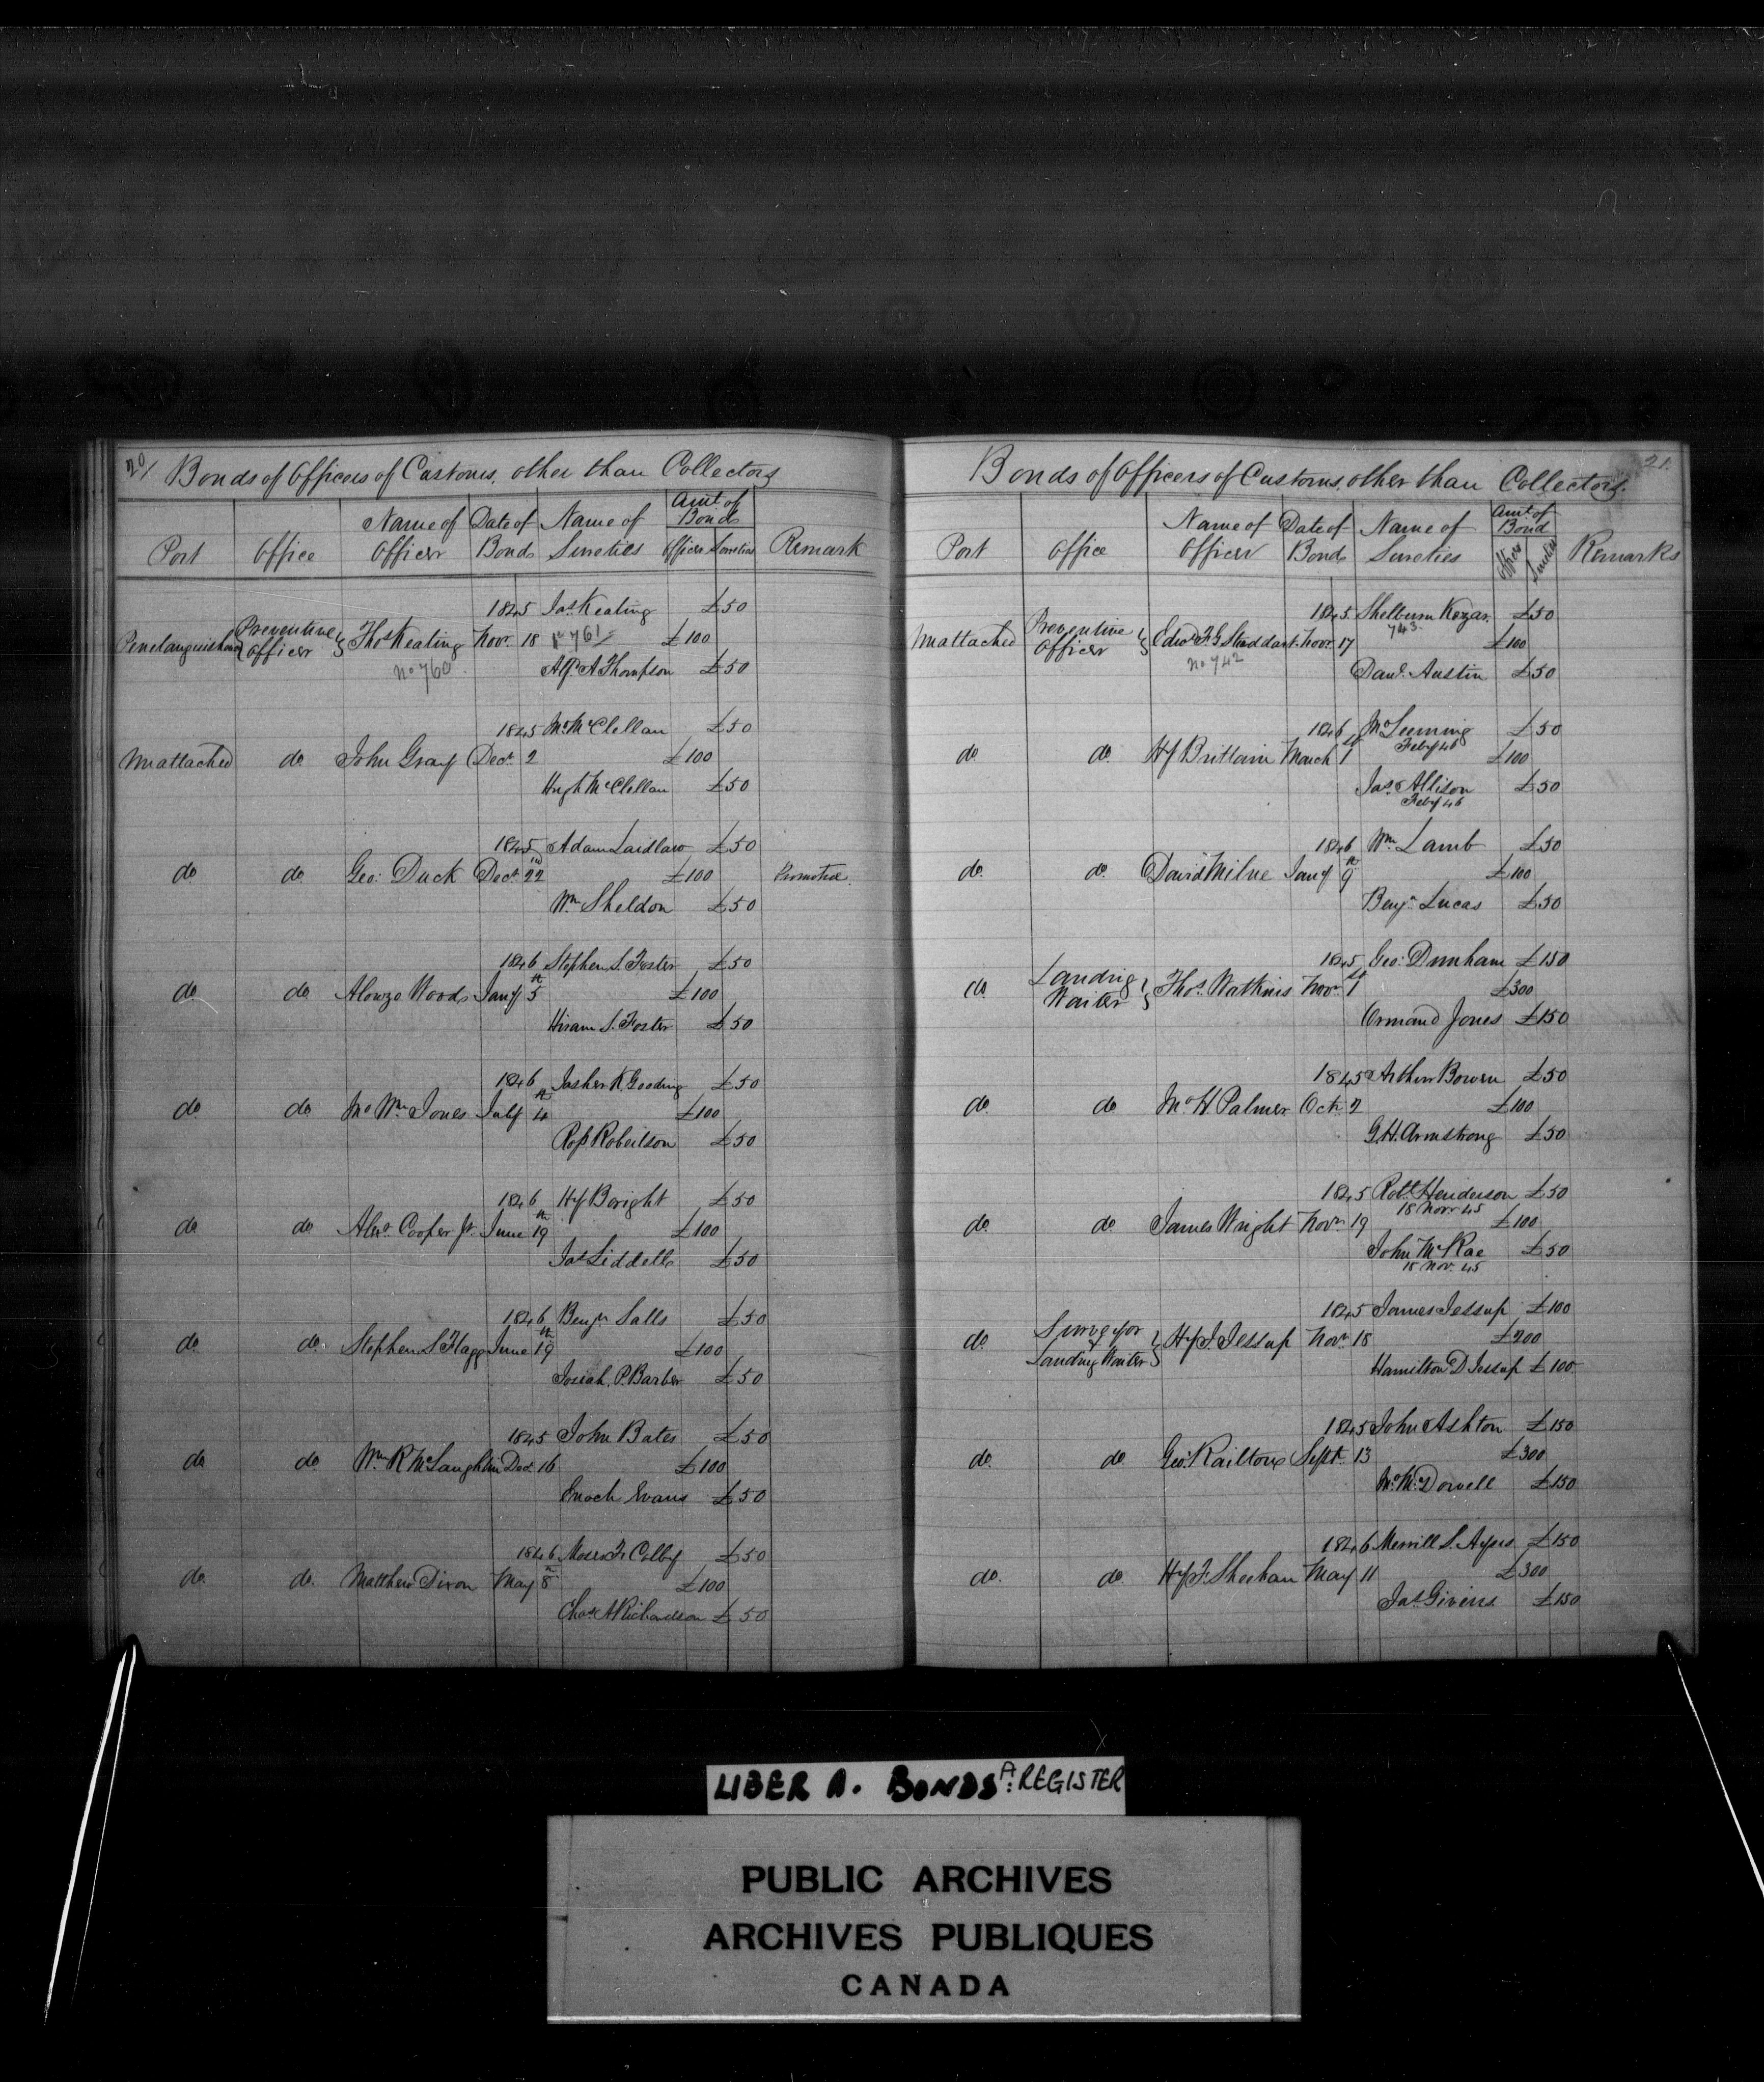 20/ Bonds of Officers of Customs, other than Collectors
Port Office Name of Officer Date of Bond Name of Sureties Amt. of Bonds Officer Sureties Remark
1845 Jas Keating £50
Penetanguishene Preventive Officer Thos Keating Novr. 18 No 761 £100
No 760
Alfd. A Thompson £50
1845 Jno McClellan £50
Unattached do John Gray Decr. 2 £100
Hugh McClellan £50
1845 Adam Laidlaw £50
do do Geo: Duck Decr. 22 £100 Promoted.
Wm Sheldon £50
1846 Stephen S. Foster £50
do do Alonzo Woods Jany 5th £100
Hiram S. Foster £50
1846 Jasher K Gooding £50
do do Jno Wm Jones July 4th £100
Ross Robertson £50
1846 Hy Boright £50
do do Alexr. Cooper Jr. June 19th £100
Jas Liddell £50
1846 Benjn Salls £50
do do Stephen S Flagg June 19th £100
Josiah. P. Barber £50
1845 John Bates £50
do do Wm R McLaughlin Decr. 16 £100
Enoch Evans £50
1846 Moses F. Colby £50
do do. Matthew Dixon May 8th £100
Chas A Richardson £50
Bonds of Officers of Customs, other than Collectors. 21.
Port Office Name of Officer Date of Bond Name of Sureties Amt of Bond Officer Sureties Remarks
1845. Shelburn Kezar. £50
743.
Unattached Preventive Officer Edwd. F. G. Stoddart. Novr. 17 £100
No 742
Danl. Austin £50
1846 Jno Leeming £50
Feby 46
do do. Hy Brittain March 1st £100
Jas. Allison £50
Feby 46
1846 Wm Lamb £50
do. do. David Milne Jany 9th £100
Benjn Lucas £50
1845 Geo: Dunham £150
do. Landing Waiter Thos. Watkins Novr. 1st £300
Ormand Jones £150
1845 Arthur Bowen £50
do. do Jno H. Palmer Oct. 2 £100
G. H. Armstrong £50
1845 Robt. Henderson £50
18 Novr 45
do. do James Wright Novr. 19 £100
John McRae £50
18 Nov. 45
1845 James Jessup £100
do. Surveyor & Landing Waiter Hy J. Jessup Novr. 18 £200
Hamilton D Jessup £100
1845 John Ashton £150
do. do Geo: Railton Sept. 13 £300
Jno McDowell £150
1846 Merrill S. Ayers £150
do. do. Hy F. Sheehan May 11 £300
Jas Givens £150
LIBER A. BONDS A: REGISTER
PUBLIC ARCHIVES
ARCHIVES PUBLIQUES
CANADA